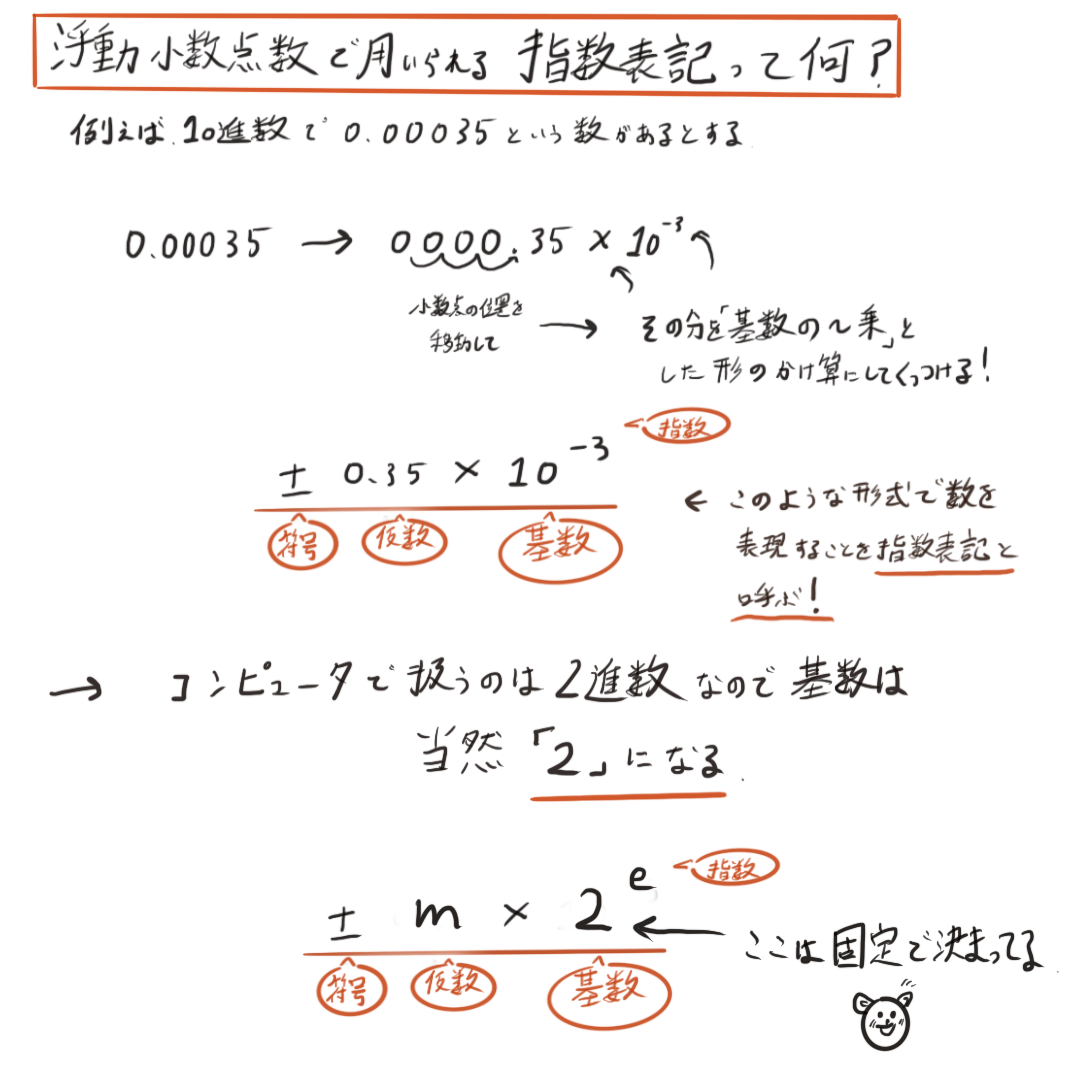 浮動小数点数で用いられる指数表記って何?
例えば、10進数で0.00035という数があるとする
0.00035 → 0000.35 × 10⁻³
小数点の位置を
移動して
→ その分を「基数の〜乗」と
した形のかけ算にしてくっつける!
指数
± 0.35 × 10⁻³
符号 仮数 基数
← このような形式で数を
表現することを指数表記と
呼ぶ!
→ コンピュータで扱うのは2進数なので基数は
当然「2」になる.
指数
± m × 2ᵉ
符号 仮数 基数
← ここは固定で決まってる